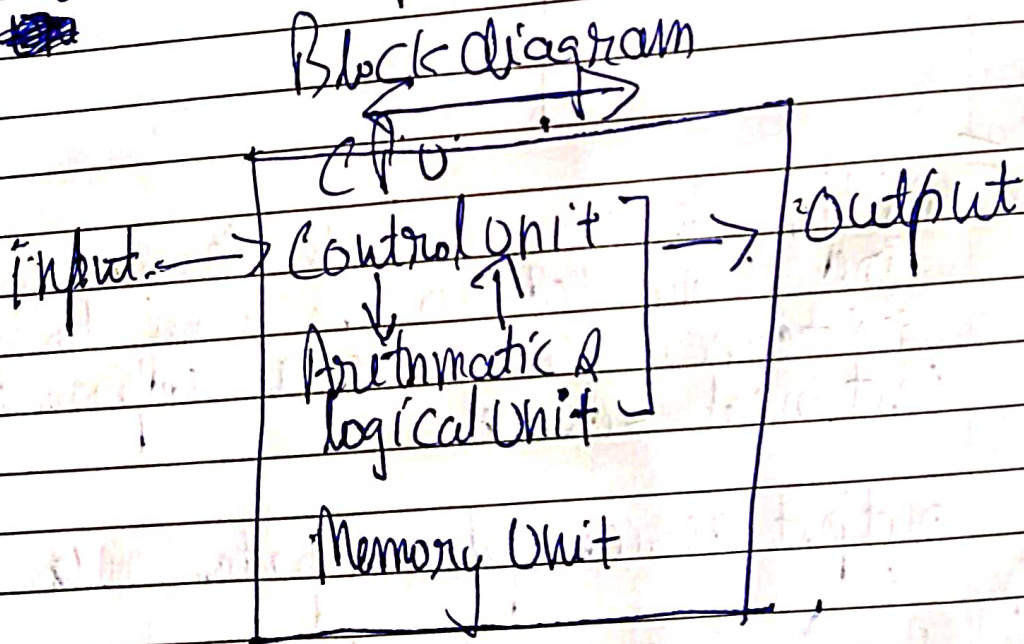 Block diagram
CPU
input → Control Unit → Output
Arithmatic &
logical Unit
Memory Unit